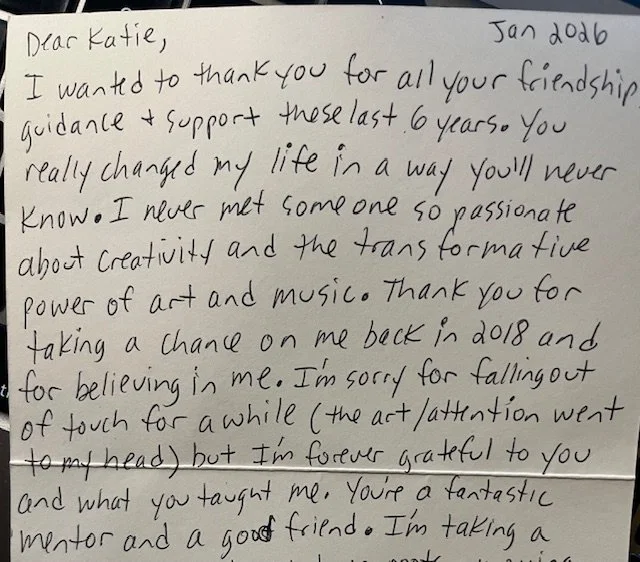 Dear Katie, Jan 2026
I wanted to thank you for all your friendship
guidance + support these last 6 years. You
really changed my life in a way you'll never
know. I never met someone so passionate
about creativity and the transformative
power of art and music. Thank you for
taking a chance on me back in 2018 and
for believing in me. I'm sorry for falling out
of touch for a while (the art/attention went
to my head) but I'm forever grateful to you
and what you taught me. You're a fantastic
mentor and a good friend. I'm taking a